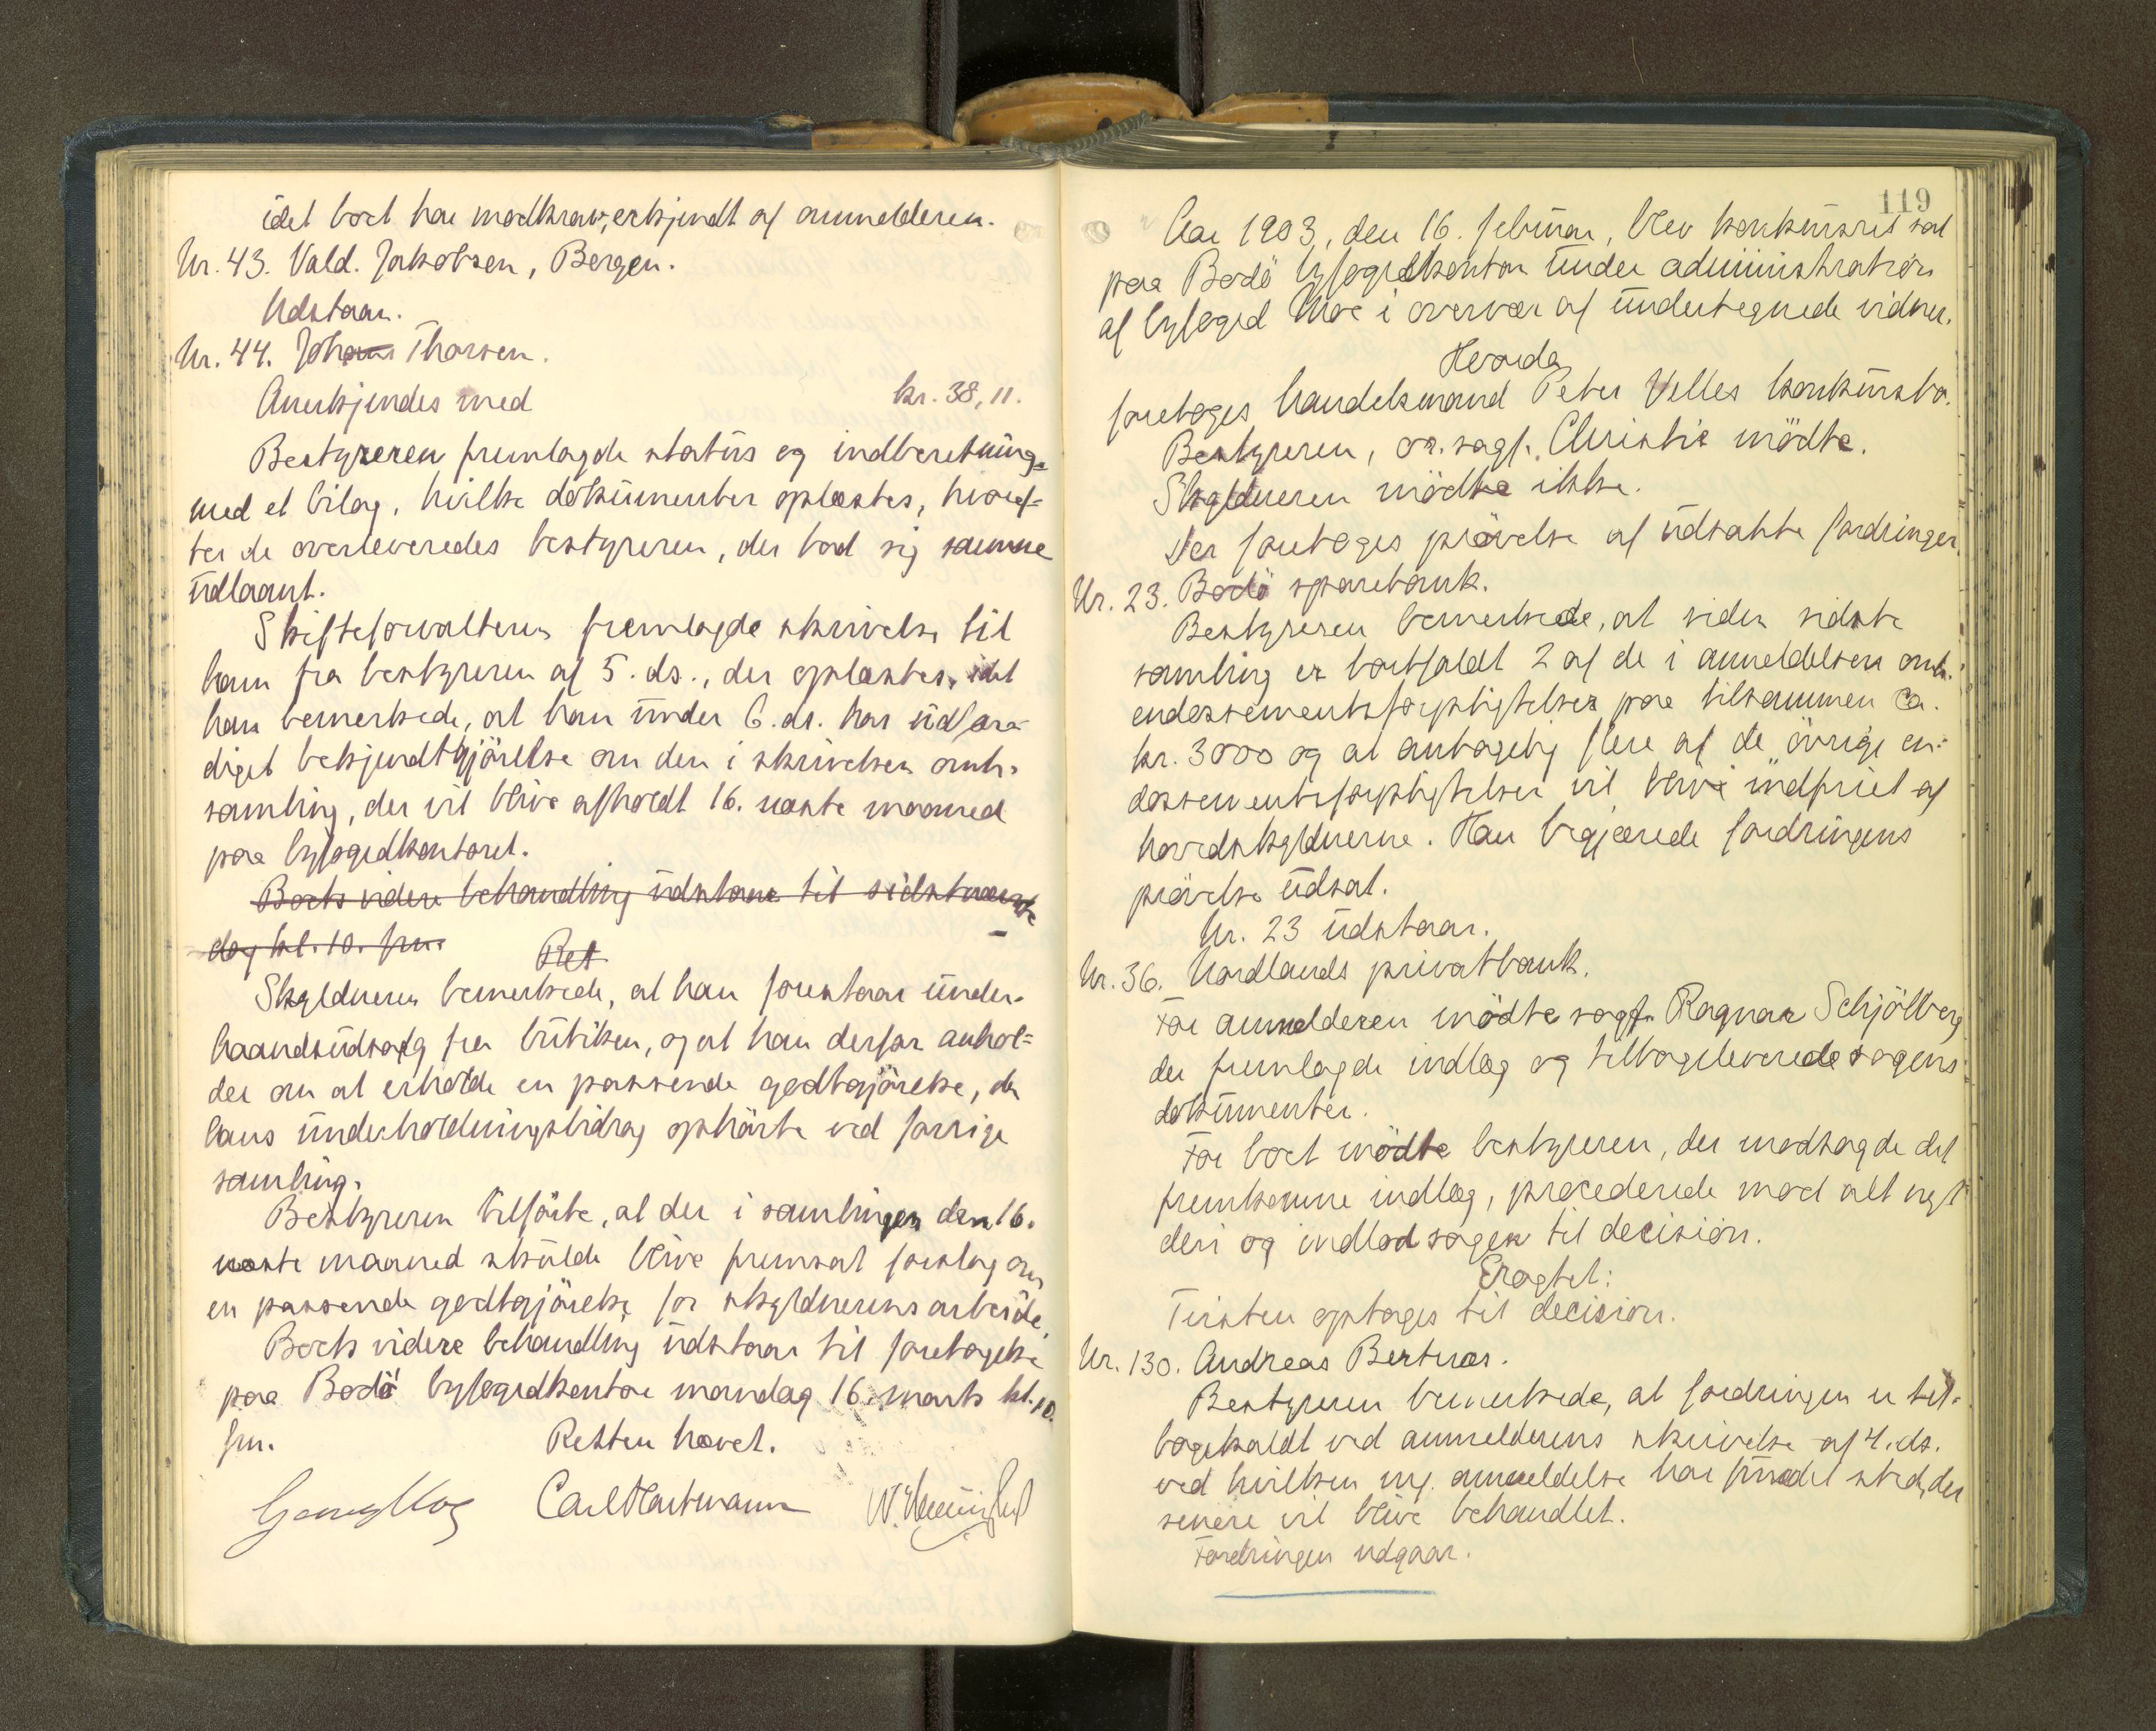 idet boet har modkrav, erkjendt af anmelderen.
Nr. 43. Vald. Jakobsen, Bergen.
Udstaar.
Nr. 44. Johans Thorsen.
Anerkjendes med kr. 38,11.
Bestyreren fremlagde status og indberetning
med et bilag, hvilke dokumenter oplæstes, hvoref-
ter de overleveredes bestyreren, der bad sig samme
udlaant.
Skifteforvalteren fremlagde skrivelse til
ham fra bestyreren af 5. ds., der oplæstes, idet
han bemerkede, at han under 6. ds. har udfær-
diget bekjendtgjörelse om den i skrivelsen omh.
samling, der vil blive afholdt 16. næste maaned
paa byfogedkontoret.
Boets videre behandling udstaar til sidstnævnte
dag kl. 10. fm.
Ret
Skyldneren bemerkede, at han forestaar under-
haandsudsalg fra butiken, og at han derfor anhol-
der om at erholde en passende godtgjörelse, da
hans underholdningsbidrag ophörte ved forrige
samling.
Bestyreren tilförte, at der i samlingen den 16.
næste maaned skulde blive fremsat forslag om
en passende godtgjörelse for skyldnerens arbeide.
Boets videre behandling udstaar til foretagelse
paa Bodö byfogedkontor mandag 16. marts kl. 10.
fm. Retten hævet.
Carl Hartmann
119
Aar 1903, den 16. februar, blev konkursret sat
paa Bodö byfogedkontor under administration
af byfoged Moe i overvær af undertegnede vidner.
Hvorda
foretoges handelsmand Peter Velles konkursbo.
Bestyreren, or. sagf. Christie mödte.
Skyldneren mödte ikke.
Der foretoges prövelse af udsatte fordringer.
Nr. 23. Bodö sparebank.
Bestyreren bemerkede, at siden sidste
samling er bortfaldt 2 af de i anmeldelsen omh.
endossementsforpligtelser paa tilsammen ca.
kr. 3000 og at antagelig flere af de övrige en-
dossementsforpligtelser vil blive indfriet af
hovedskyldnerne. Han begjærede fordringens
prövelse udsat.
Nr. 23 udstaar.
Nr. 36. Nordlands privatbank.
For anmelderen mödte sagf. Ragnar Schjölberg
der fremlagde indlæg og tilbageleverede sagens
dokumenter.
For boet mödte bestyreren, der modtog de det
fremkomne indlæg, procederede mod alt nyt
deri og indlod sagen til decision.
Eragtet:
Tvisten optages til decision.
Nr. 130. Andreas Bertnæs.
Bestyreren bemerkede, at fordringen er til-
bagekaldt ved anmelderens skrivelse af 4. ds.
ved hvilken ny anmeldelse har fundet sted, der
senere vil blive behandlet.
Fordringen udgaar.